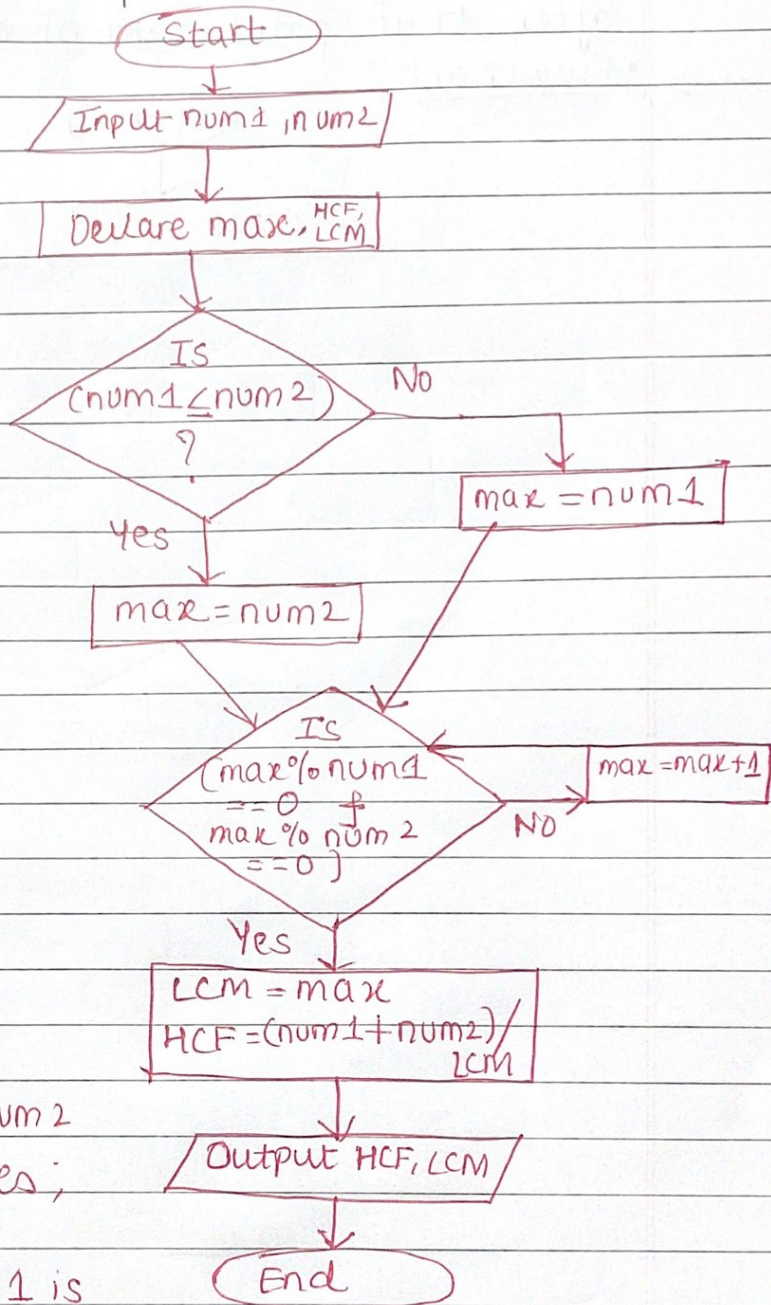 Start
Input num1, num2
Declare max, HCF,
LCM
Is
(num1≤num2)
?
No
max = num1
Yes
max = num2
Is
(max%num1
==0 &
max % num 2
==0)
No
max=max+1
Yes
LCM = max
HCF=(num1+num2)/
LCM
um 2
es;
Output HCF, LCM
1 is
End